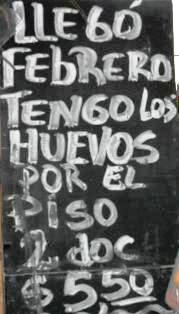 LLEGÓ
FEbRERO
TENGO LOS
HUEVOS
POR EL
PISO
2 DOC
$ 5,50